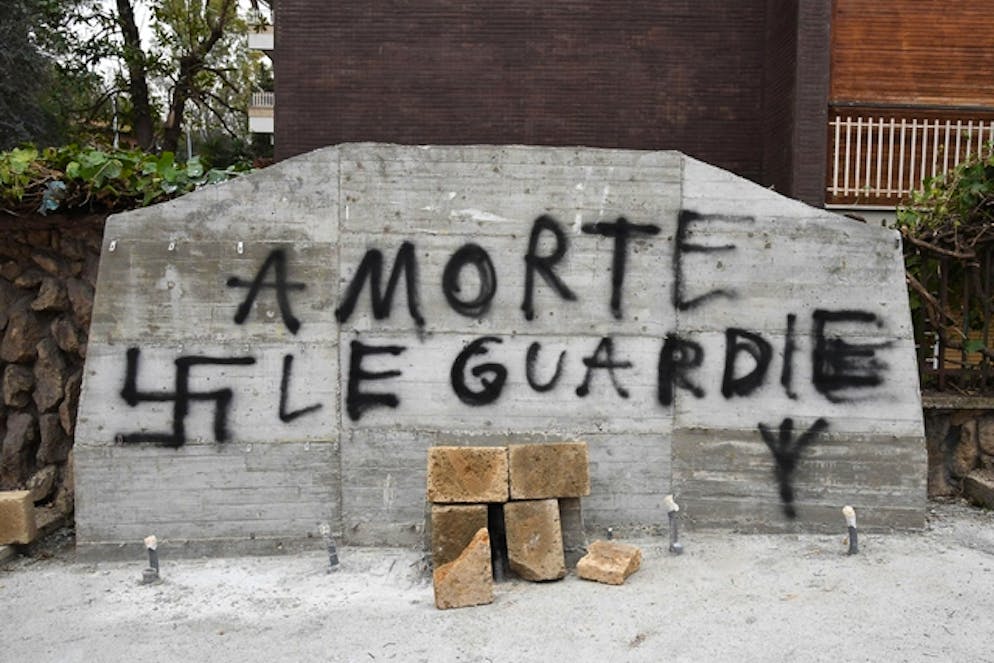 A MORTE
LE GUARDIE